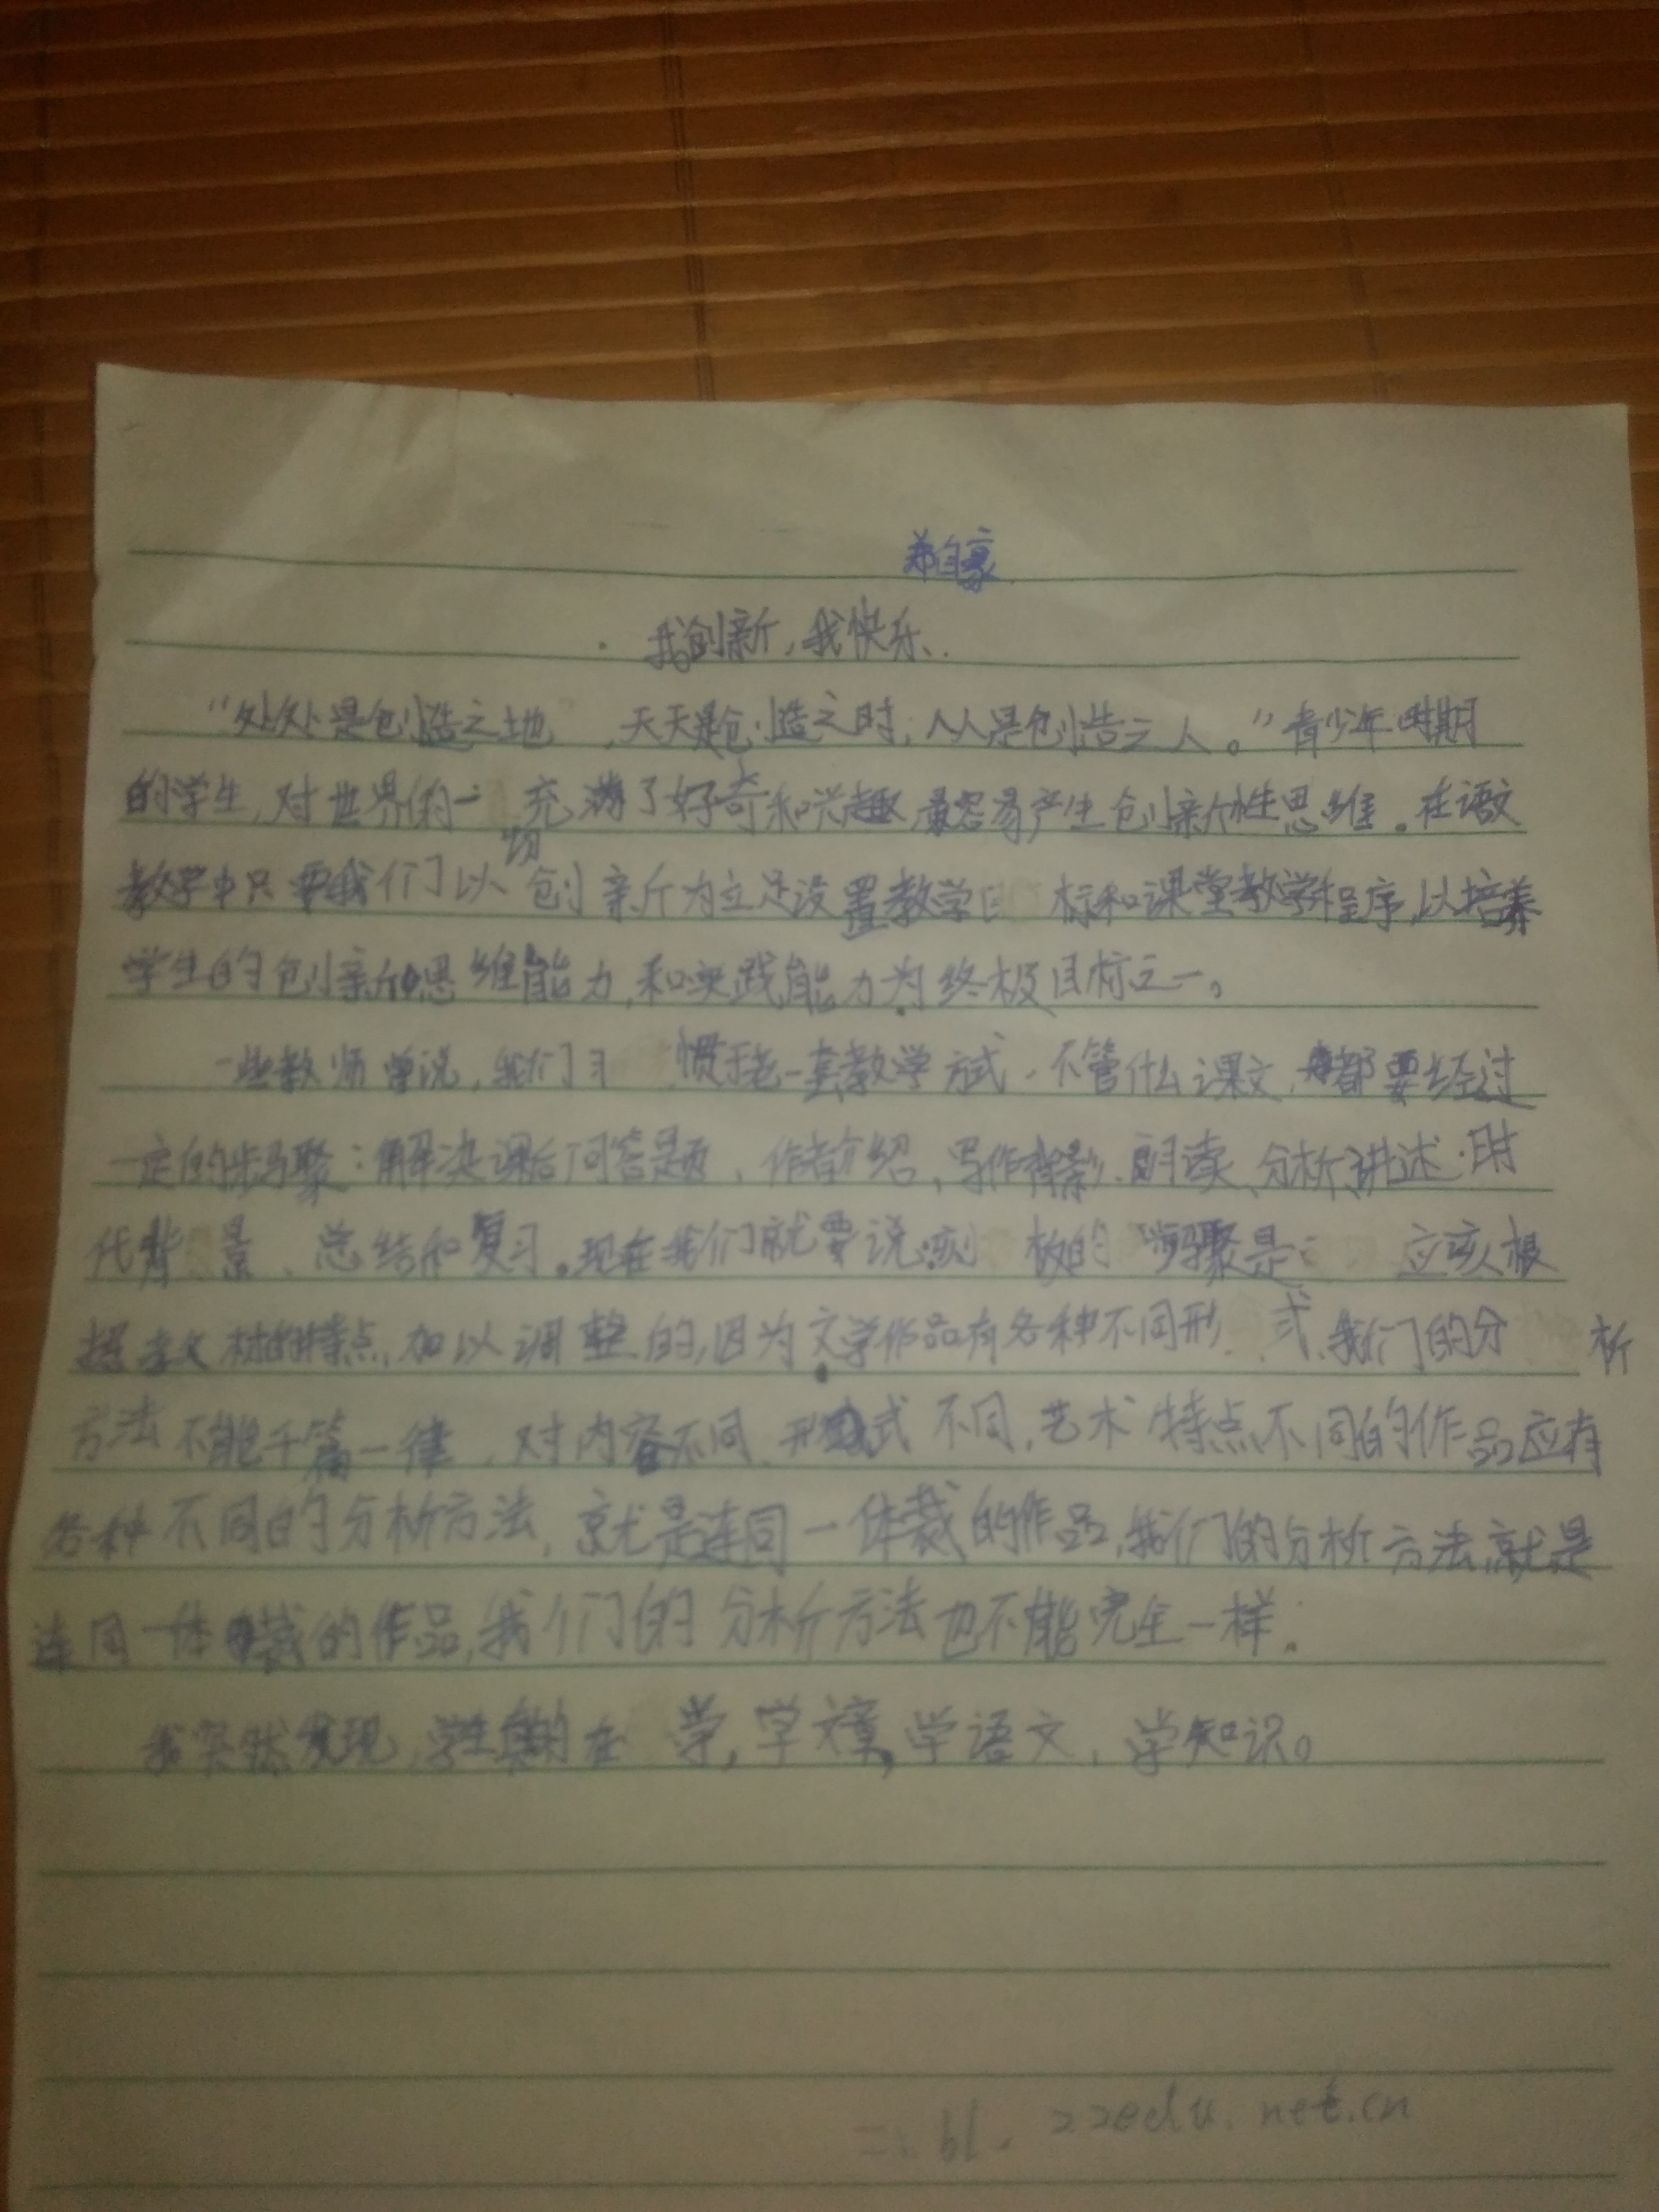 郑自豪
我创新,我快乐.
“处处是创造之地,天天是创造之时,人人是创造之人。”青少年时期
的学生,对世界的一切充满了好奇和兴趣,最容易产生创新性思维。在语文
教学中只要我们以创新为立足设置教学目标和课堂教学程序,以培养
学生的创新思维能力,和实践能力为终极目标之一。
一些教师曾说,我们习惯于老一套教学方式.不管什么课文,都要经过
一定的步骤:解决课后问答题、作者介绍、写作背影、朗读、分析、讲述.时
代背景、总结和复习。现在我们就要说:刻板的步骤是 应该根
据 教材的特点,加以调整的,因为文学作品有各种不同形式,我们的分析
方法不能千篇一律,对内容不同、形式不同,艺术特点不同的作品应有
各种不同的分析方法,就是连同一体裁的作品,我们的分析方法,就是
连同一体裁的作品,我们的分析方法也不能完全一样.
我突然发现,学生真的在学,学文章,学语文,学知识。
=.bl. zzedu.net.cn